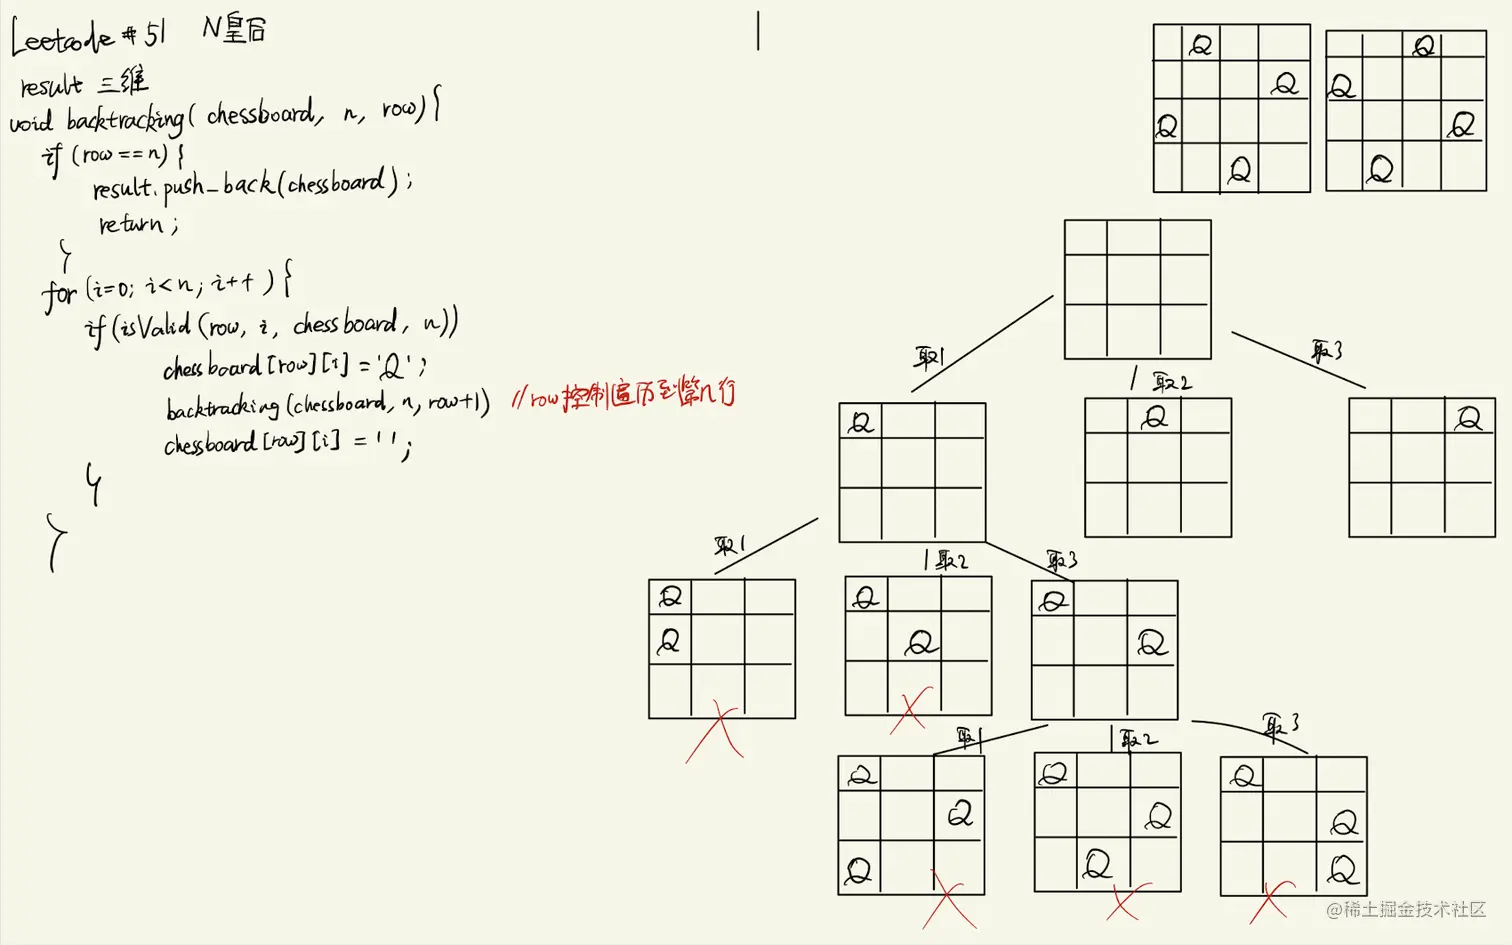 Leetcode #51 N皇后
result 三维
void backtracking( chessboard, n, row){
if (row == n) {
result.push_back(chessboard);
return;
}
for (i=0; i<n; i++ ) {
if (isValid (row, i, chessboard, n))
chessboard[row][i] = 'Q';
backtracking (chessboard, n, row+1) //row控制遍历到第几行
chessboard[row][i] = ' ';
}
}
Q
Q
Q
Q
Q
Q
Q
Q
取1
取2
取3
Q
Q
Q
取1
取2
取3
Q
Q
Q
Q
Q
Q
取1
取2
取3
Q
Q
Q
Q
Q
Q
Q
Q
Q
@稀土掘金技术社区